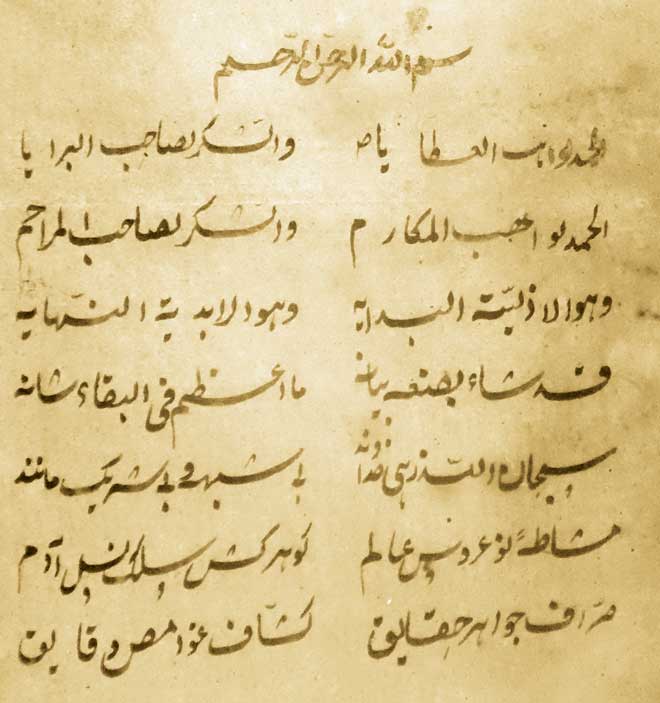 بسم الله الرحمن الرحیم
الحمد لواهب العطایا والشکر لصاحب البرایا
الحمد لواهب المکارم والشکر لصاحب المراحم
وهو الازلیّة البدایه وهو الابدیة النّهایه
قد شاء بصنعه بیانه ما اعظم فی البقاء شانه
سبحان اللّه زهی خداوند بی شبه و بی شریک مانند
مشاطهٔ نوعروس عالم کوهرکش سلک نسل آدم
صرّاف جواهر حقایق کشّاف غوامض دقایق